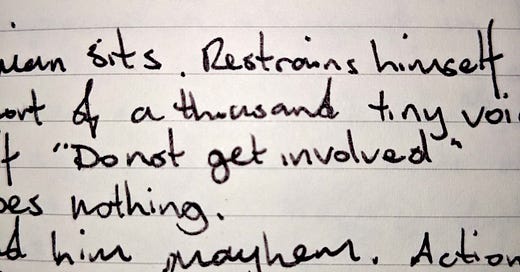 man sits. Restrains himself
ort of a thousand tiny voi
f "Do not get involved"
oes nothing.
d him mayhem. Action